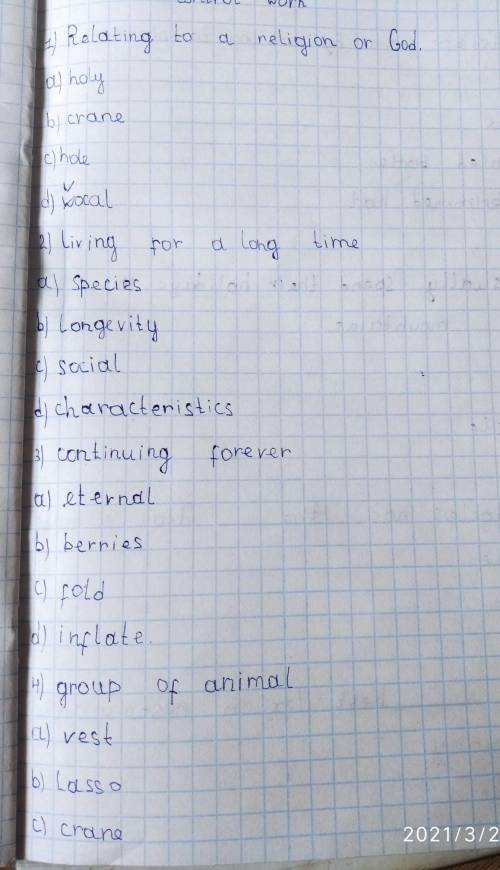 control work
1) Relating to a religion or God.
a) holy
b) crane
c) hole
d) vocal
2) living for a long time
a) species
b) longevity
c) social
d) characteristics
3) continuing forever
a) eternal
b) berries
c) fold
d) inflate.
4) group of animal
a) vest
b) lasso
c) crane
2021/3/2